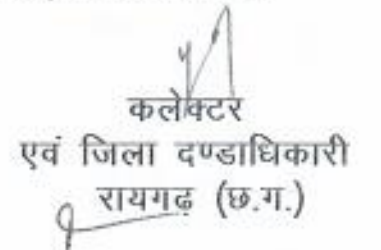 कलेक्टर
एवं जिला दण्डाधिकारी
रायगढ़ (छ.ग.)